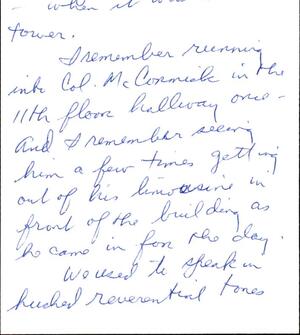 - when it was
tower.
I remember running
into Col. McCormick in the
11th floor hallway once -
and I remember seeing
him a few times getting
out of his limousine in
front of the building as
he came in for the day.
We used to speak in
hushed reverential tones